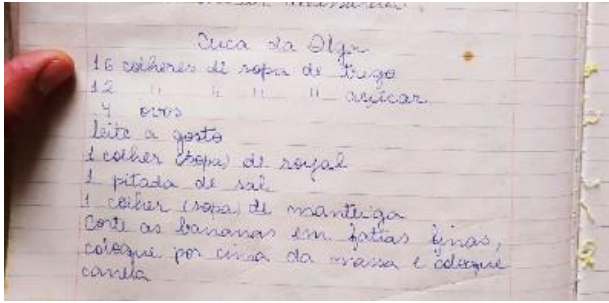 Cuca da Olga
16 colheres de sopa de trigo
12 " " " " açúcar
4 ovos
leite a gosto
1 colher (sopa) de royal
1 pitada de sal
1 colher (sopa) de manteiga
Corte as bananas em fatias finas,
coloque por cima da massa e coloque
canela